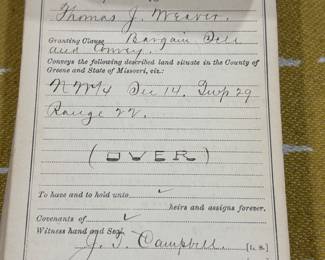 Thomas J. Weaver.
Granting Clause Bargain Sell
and Convey.
Conveys the following described land situate in the County of
Greene and State of Missouri, viz.:
NW¼ Sec 14. Twp 29
Range 22.
(OVER)
To have and to hold unto ✓
heirs and assigns forever.
Covenants of ✓
Witness hand and Seal.
J. T. Campbell. [L. S.]